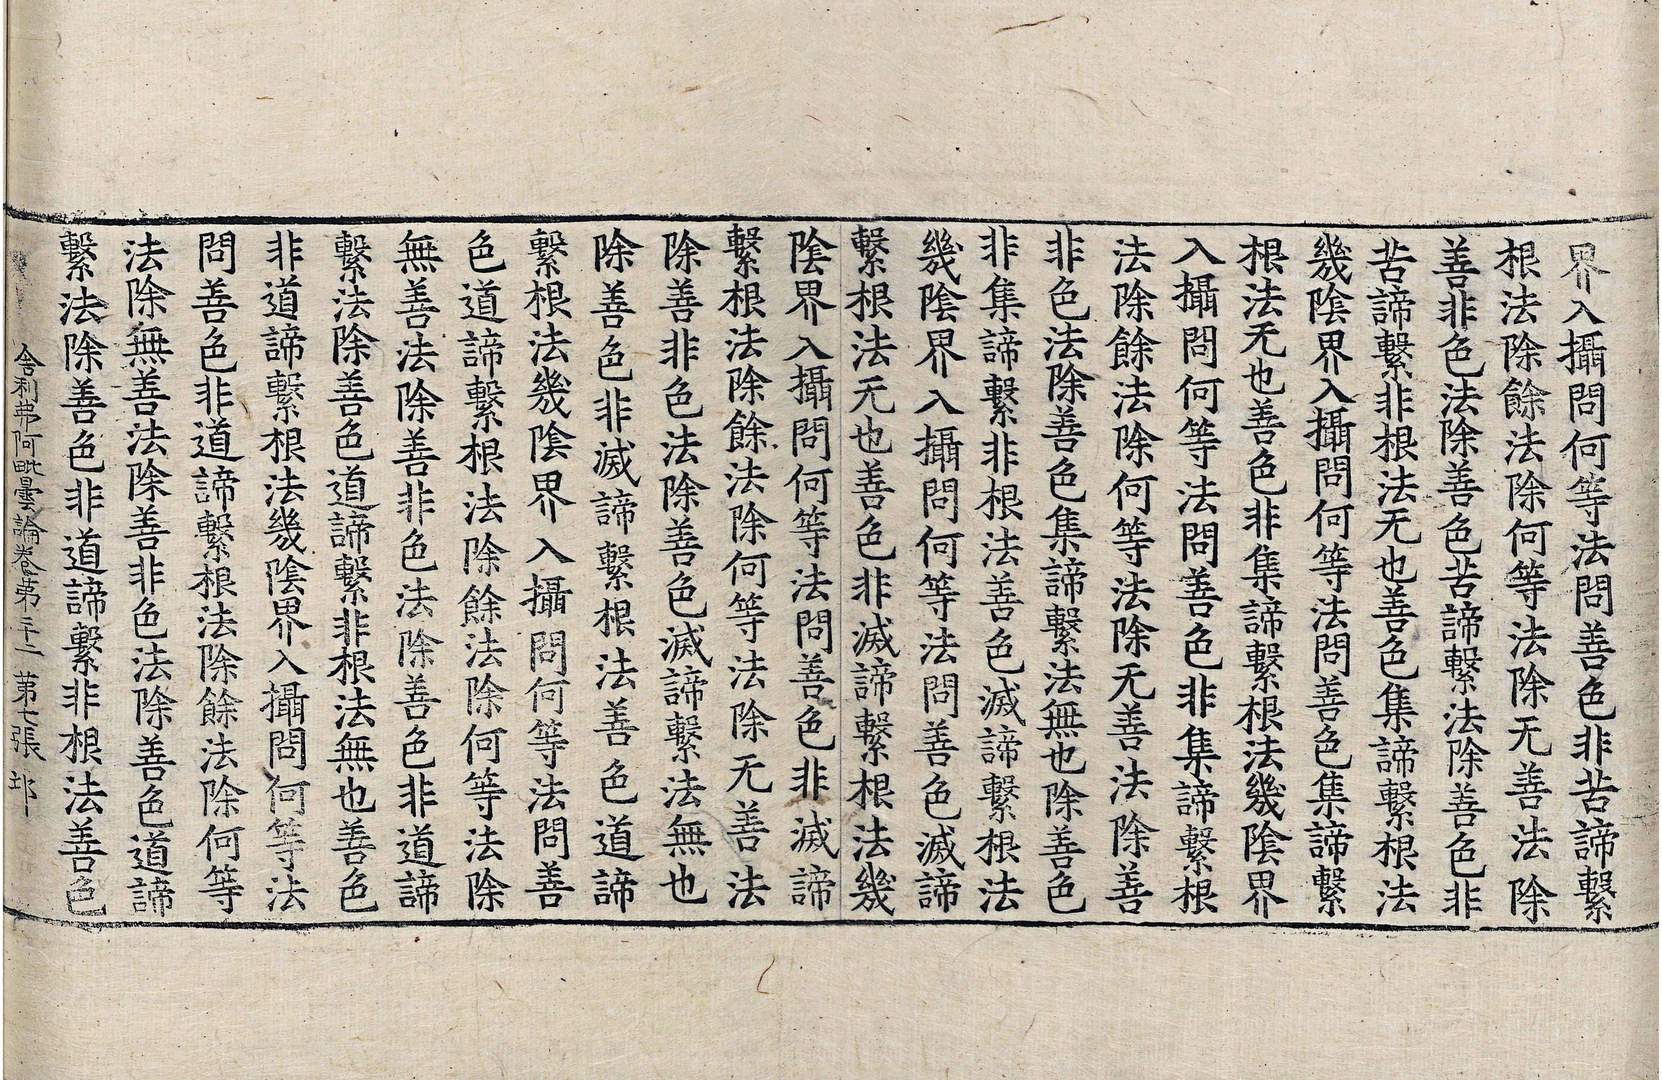 界入攝問何等法問善色非苦諦繫
根法除餘法除何等法除无善法除
善非色法除善色苦諦繫法除善色非
苦諦繫非根法无也善色集諦繫根法
幾陰界入攝問何等法問善色集諦繫
根法无也善色非集諦繫根法幾陰界
入攝問何等法問善色非集諦繫根
法除餘法除何等法除无善法除善
非色法除善色集諦繫法無也除善色
非集諦繫非根法善色滅諦繫根法
幾陰界入攝問何等法問善色滅諦
繫根法无也善色非滅諦繫根法幾
陰界入攝問何等法問善色非滅諦
繫根法除餘法除何等法除无善法
除善非色法除善色滅諦繫法無也
除善色非滅諦繫根法善色道諦
繫根法幾陰界入攝問何等法問善
色道諦繫根法除餘法除何等法除
無善法除善非色法除善色非道諦
繫法除善色道諦繫非根法無也善色
非道諦繫根法幾陰界入攝問何等法
問善色非道諦繫根法除餘法除何等
法除無善法除善非色法除善色道諦
繫法除善色非道諦繫非根法善色
舍利弗阿毗曇論卷第二十二 第七張 邙